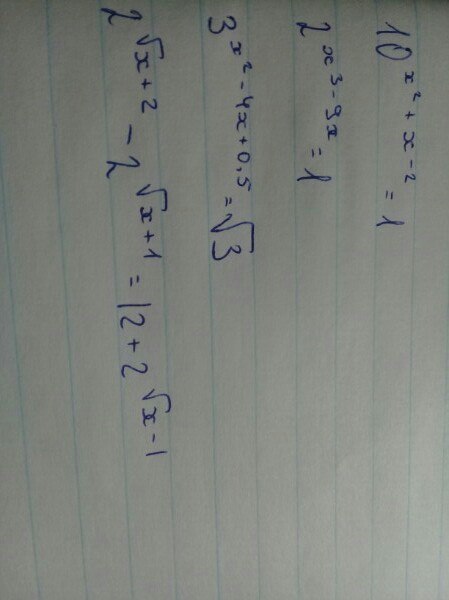 10^{x^2+x-2} = 1
2^{x^3-9x} = 1
3^{x^2-4x+0,5} = √3
2^{√x+2} - 2^{√x+1} = 12 + 2^{√x-1}